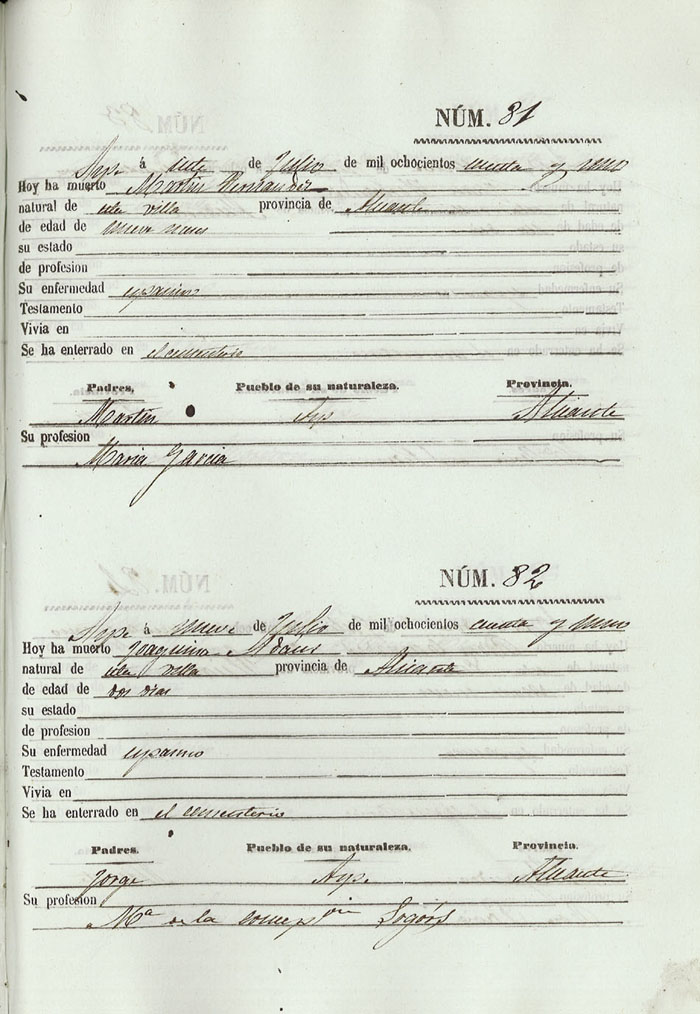 NÚM. 81
Aspe á siete de Julio de mil ochocientos cuarenta y nueve
Hoy ha muerto Martin Hernandez
natural de esta villa provincia de Alicante
de edad de nueve meses
su estado
de profesion
Su enfermedad espasmo
Testamento
Vivia en
Se ha enterrado en el cementerio
Padres. Pueblo de su naturaleza. Provincia.
Martin Aspe Alicante
Su profesion
Maria Garcia
NÚM. 82
Aspe á nueve de Julio de mil ochocientos
Hoy ha muerto Joaquina
natural de esta villa provincia de Alicante
de edad de dos dias
su estado
de profesion
Su enfermedad espasmo
Testamento
Vivia en
Se ha enterrado en el cementerio
Padres. Pueblo de su naturaleza. Provincia.
Jorge Aspe Alicante
Su profesion
Mª de la